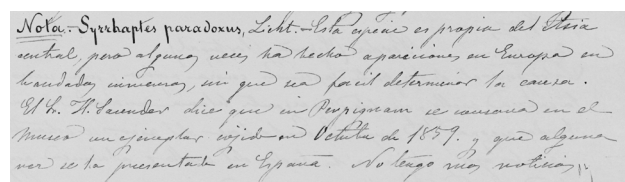 Nota.- Syrrhaptes paradoxus, Licht.- Esta especie es propia del Asia
central, pero algunas veces ha hecho apariciones en Europa en
bandadas inmensas, sin que sea facil determinar la causa.
El Sr. H. Saunders dice que in Perpignan se conserva en el
Museo un ejemplar cojido en Octubre de 1859. y que alguna
vez se ha presentado en España. No tengo mas noticias.